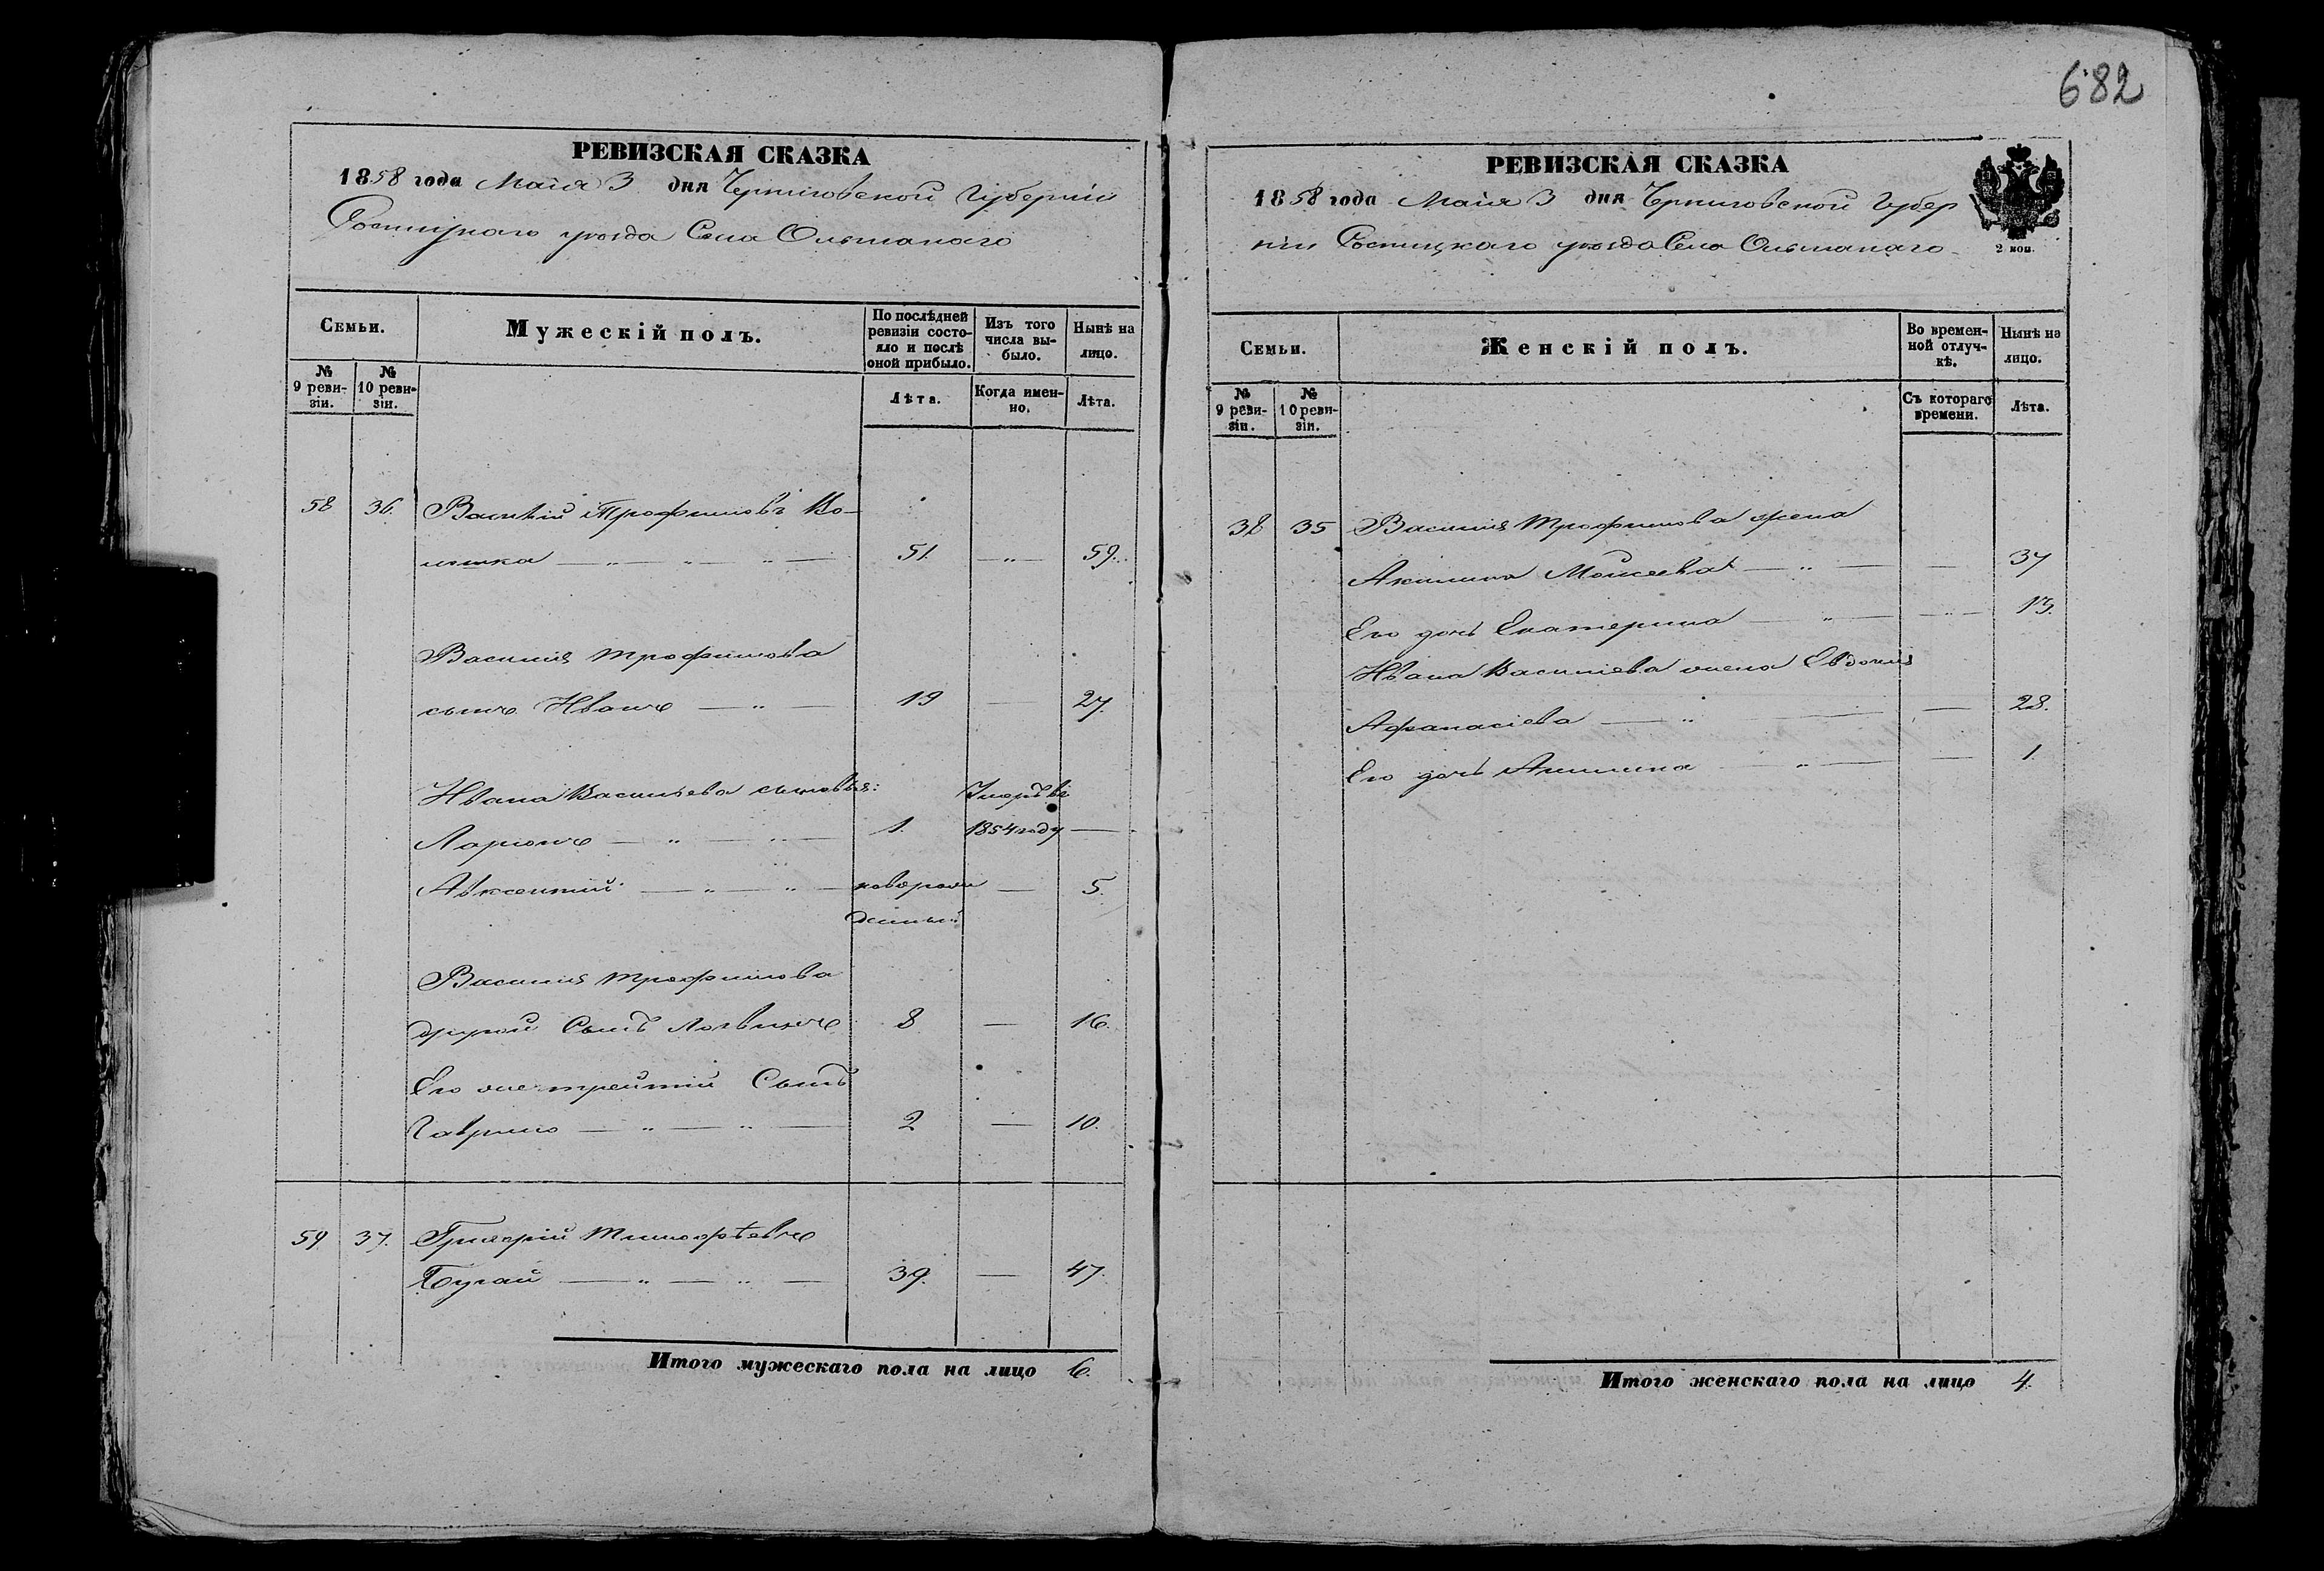 682
РЕВИЗСКАЯ СКАЗКА
1858 года Маія 3 дня Черниговской Губерніи
уезда Села Ольшанаго
Семьи.
Мужескій полъ.
По послѣдней ревизіи состояло и послѣ оной прибыло.
Изъ того числа выбыло.
Нынѣ на лицо.
№ 9 ревизіи.
№ 10 ревизіи.
Лѣта.
Когда именно.
Лѣта.
58 36. Василій Трофимовъ Во-
51. — „ — 59.
Василия Трофимова
сынъ Иванъ — „ — 19 — 27.
Ивана Васильева сыновья: Умеръ въ
Ларионъ — „ — „ — 1. 1854 году —
Авксентий — „ — „ — новорож — 5.
денный
Василия Трофимова
другой Сынъ Логвинъ 8 — 16.
Его же третий Сынъ
Гаврило — „ — „ — 2 — 10.
59 37. Григорій Тимофѣевъ
Бугай — „ — „ — 39. — 47.
Итого мужескаго пола на лицо 6.
РЕВИЗСКАЯ СКАЗКА
1858 года Маія 3 дня Черниговской Губер
ніи уезда Села Ольшанаго
2 коп.
Семьи.
Женскій полъ.
Во временной отлучкѣ.
Нынѣ на лицо.
№ 9 ревизіи.
№ 10 ревизіи.
Съ котораго времени.
Лѣта.
38 35 Василия Трофимова жена
Акилина Моисеева — „ — — 37
Его дочь Екатерина — „ — — „ — 13.
Ивана Василиева жена Евдокия
Афанасиева — „ — — 28.
Его дочь Акилина — „ — — 1.
Итого женскаго пола на лицо 4.